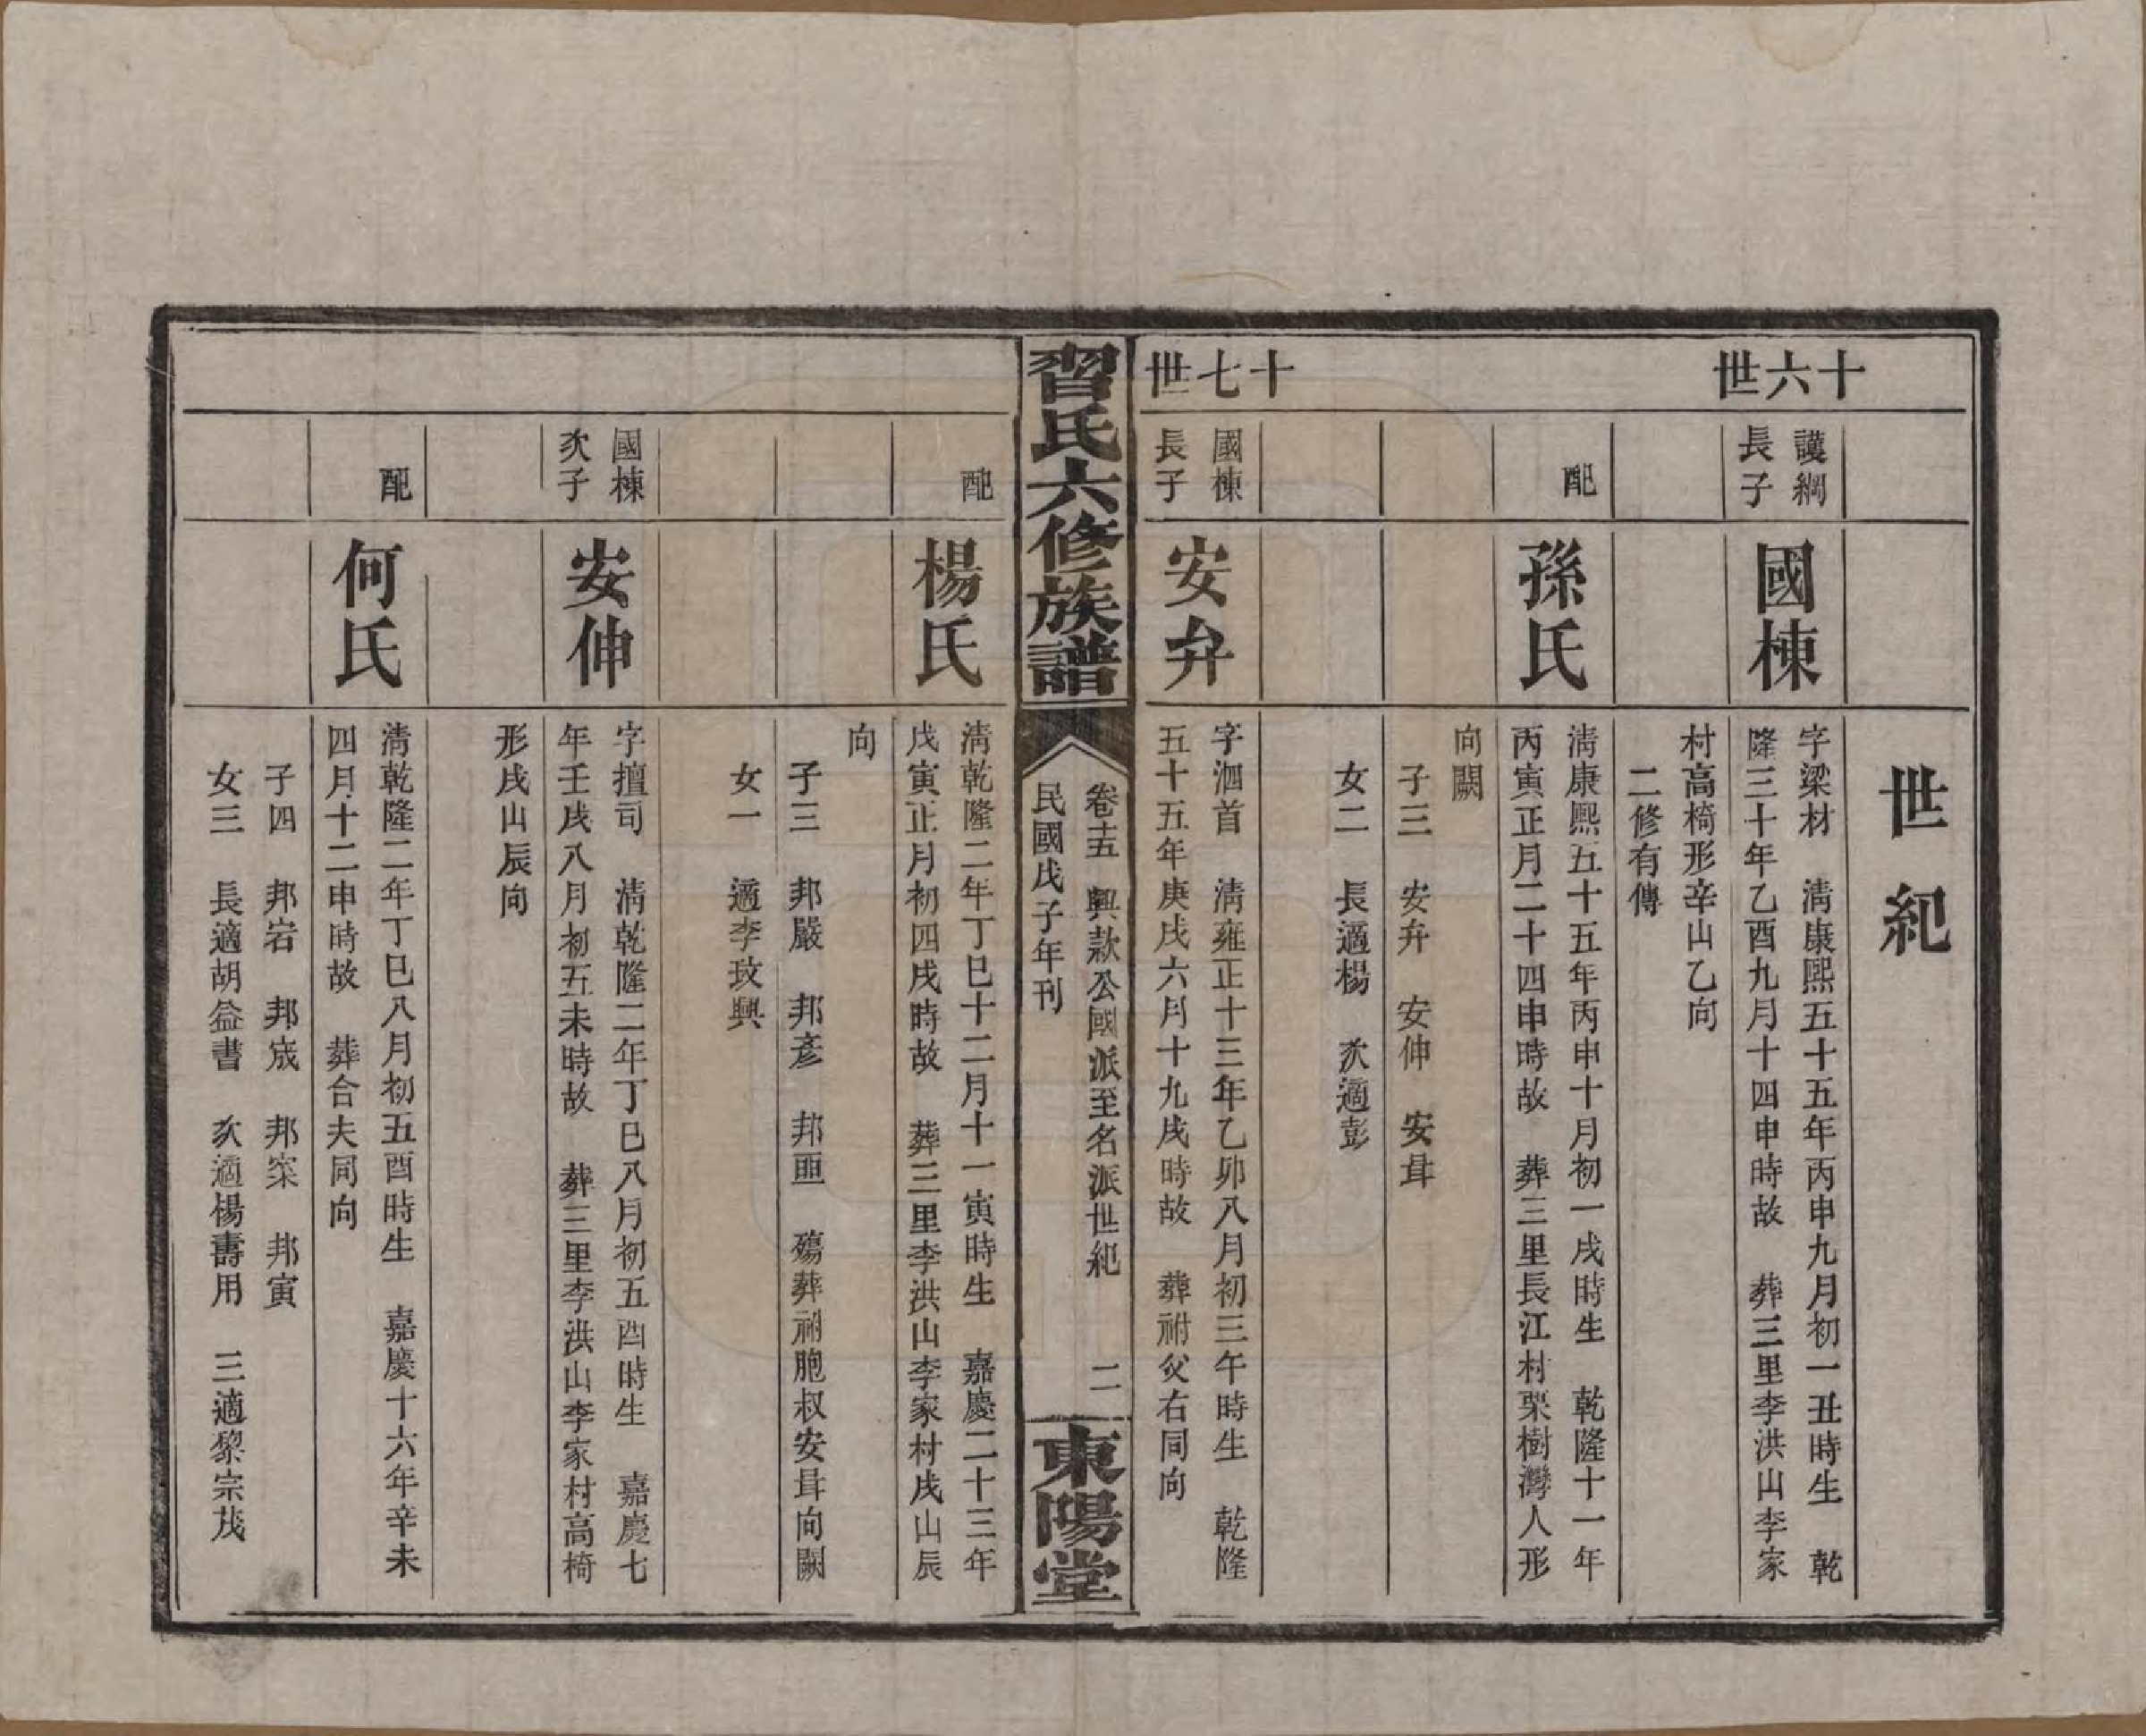 世紀
十六世
護綱
長子
國棟
字梁材　清康熙五十五年丙申九月初一丑時生　乾
隆三十年乙酉九月十四申時故　葬三里李洪山李家
村高椅形辛山乙向
二修有傳
配
孫氏
清康熙五十五年丙申十月初一戌時生　乾隆十一年
丙寅正月二十四申時故　葬三里長江村栗樹灣人形
向闕
子三　安弁　安伸　安茸
女二　長適楊　次適彭
十七世
國棟
長子
安弁
字泗首　清雍正十三年乙卯八月初三午時生　乾隆
五十五年庚戌六月十九戌時故　葬祔父右同向
習氏六修族譜
卷十五　興款公國派至名派世紀　二
民國戊子年刊
東陽堂
配
楊氏
清乾隆二年丁巳十二月十一寅時生　嘉慶二十三年
戊寅正月初四戌時故　葬三里李洪山李家村戌山辰
向
子三　邦嚴　邦彥　邦亜　殤葬祔胞叔安茸向闕
女一　適李玟興
國棟
次子
安伸
字擅司　清乾隆二年丁巳八月初五酉時生　嘉慶七
年壬戌八月初五未時故　葬三里李洪山李家村高椅
形戌山辰向
配
何氏
清乾隆二年丁巳八月初五酉時生　嘉慶十六年辛未
四月十二申時故　葬合夫同向
子四　邦岩　邦宬　邦寀　邦寅
女三　長適胡益書　次適楊壽用　三適黎宗茂